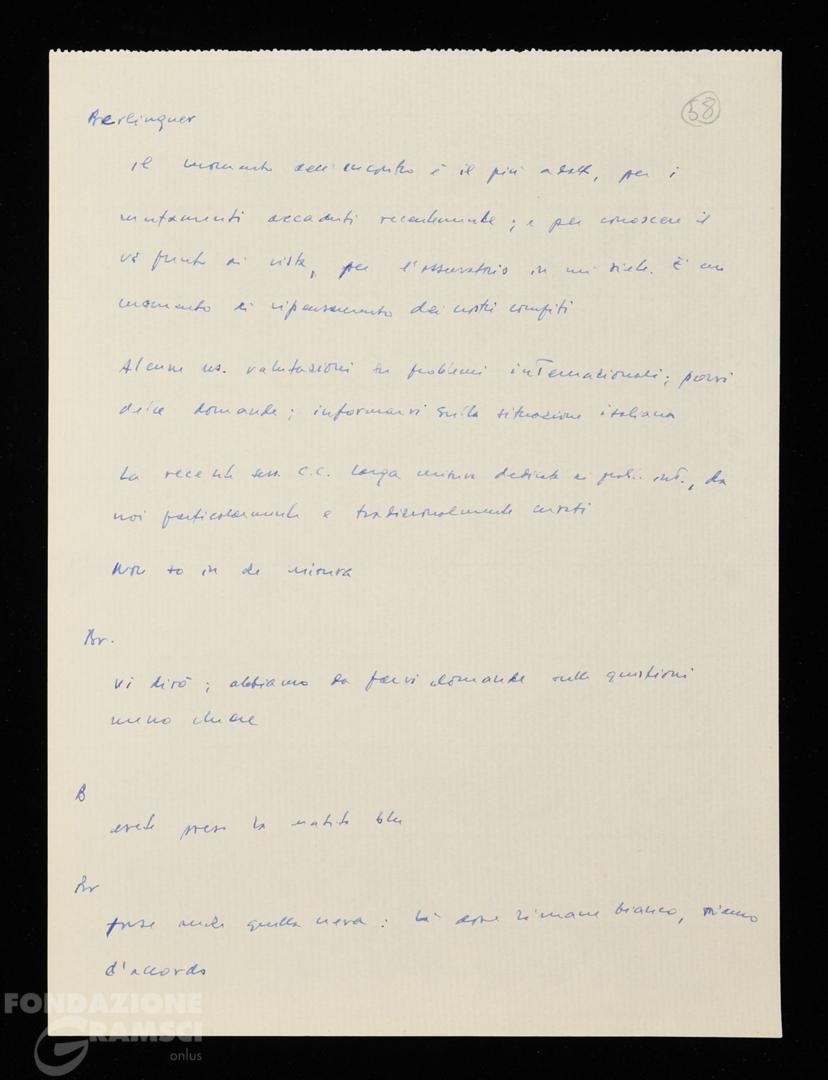 58
Berlinguer
il momento dell'incontro è il più adatto, per i
mutamenti accaduti recentemente; e per conoscere il
vs punto di vista, per l'osservatorio in cui siete. È un
momento di ripensamento dei nostri compiti
Alcune ns. valutazioni su problemi internazionali; porvi
delle domande; informarvi sulla situazione italiana
La recente sess. C.C. larga misura dedicata ai probl. int., da
noi particolarmente e tradizionalmente curati
Non so in che misura
Br.
Vi dirò; abbiamo da farvi domande sulle questioni
meno chiare
B
avete preso la matita blu
Br
forse anche quella nera: là dove rimane bianco, siamo
d'accordo
FONDAZIONE
GRAMSCI
onlus